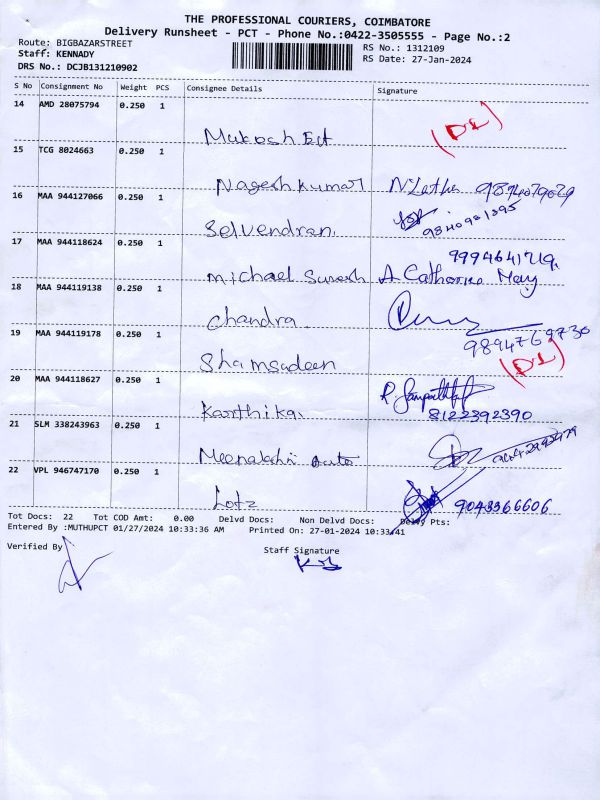 THE PROFESSIONAL COURIERS, COIMBATORE
Delivery Runsheet - PCT - Phone No.:0422-3505555 - Page No.:2
Route: BIGBAZARSTREET RS No.: 1312109
Staff: KENNADY RS Date: 27-Jan-2024
DRS No.: DCJB131210902
S No Consignment No Weight PCS Consignee Details Signature
14 AMD 28075794 0.250 1
Mukesh Ent (DL)
15 TCG 8024663 0.250 1
Nageshkumar N.Latha 9894079029
16 MAA 944127066 0.250 1
Selvendran 9840981395
17 MAA 944118624 0.250 1
9994641719
Michael Suresh A Catherine Mary
18 MAA 944119138 0.250 1
Chandra
19 MAA 944119178 0.250 1 9894769730
Shamsudeen (DL)
20 MAA 944118627 0.250 1
Karthika 8122392390
21 SLM 338243963 0.250 1
Meenakshi Auto
22 VPL 946747170 0.250 1
Lotz 9043366606
Tot Docs: 22 Tot COD Amt: 0.00 Delvd Docs: Non Delvd Docs: Delvy Pts:
Entered By :MUTHUPCT 01/27/2024 10:33:36 AM Printed On: 27-01-2024 10:33:41
Verified By Staff Signature